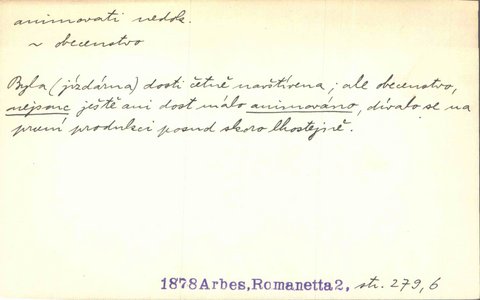 animovati nedok.
~ obecenstvo
Byla (jízdárna) dosti četně navštívena; ale obecenstvo,
nejsouc ještě ani dost málo animováno, dívalo se na
první produkci posud skoro lhostejně.
1878 Arbes, Romanetta 2, str. 279, 6